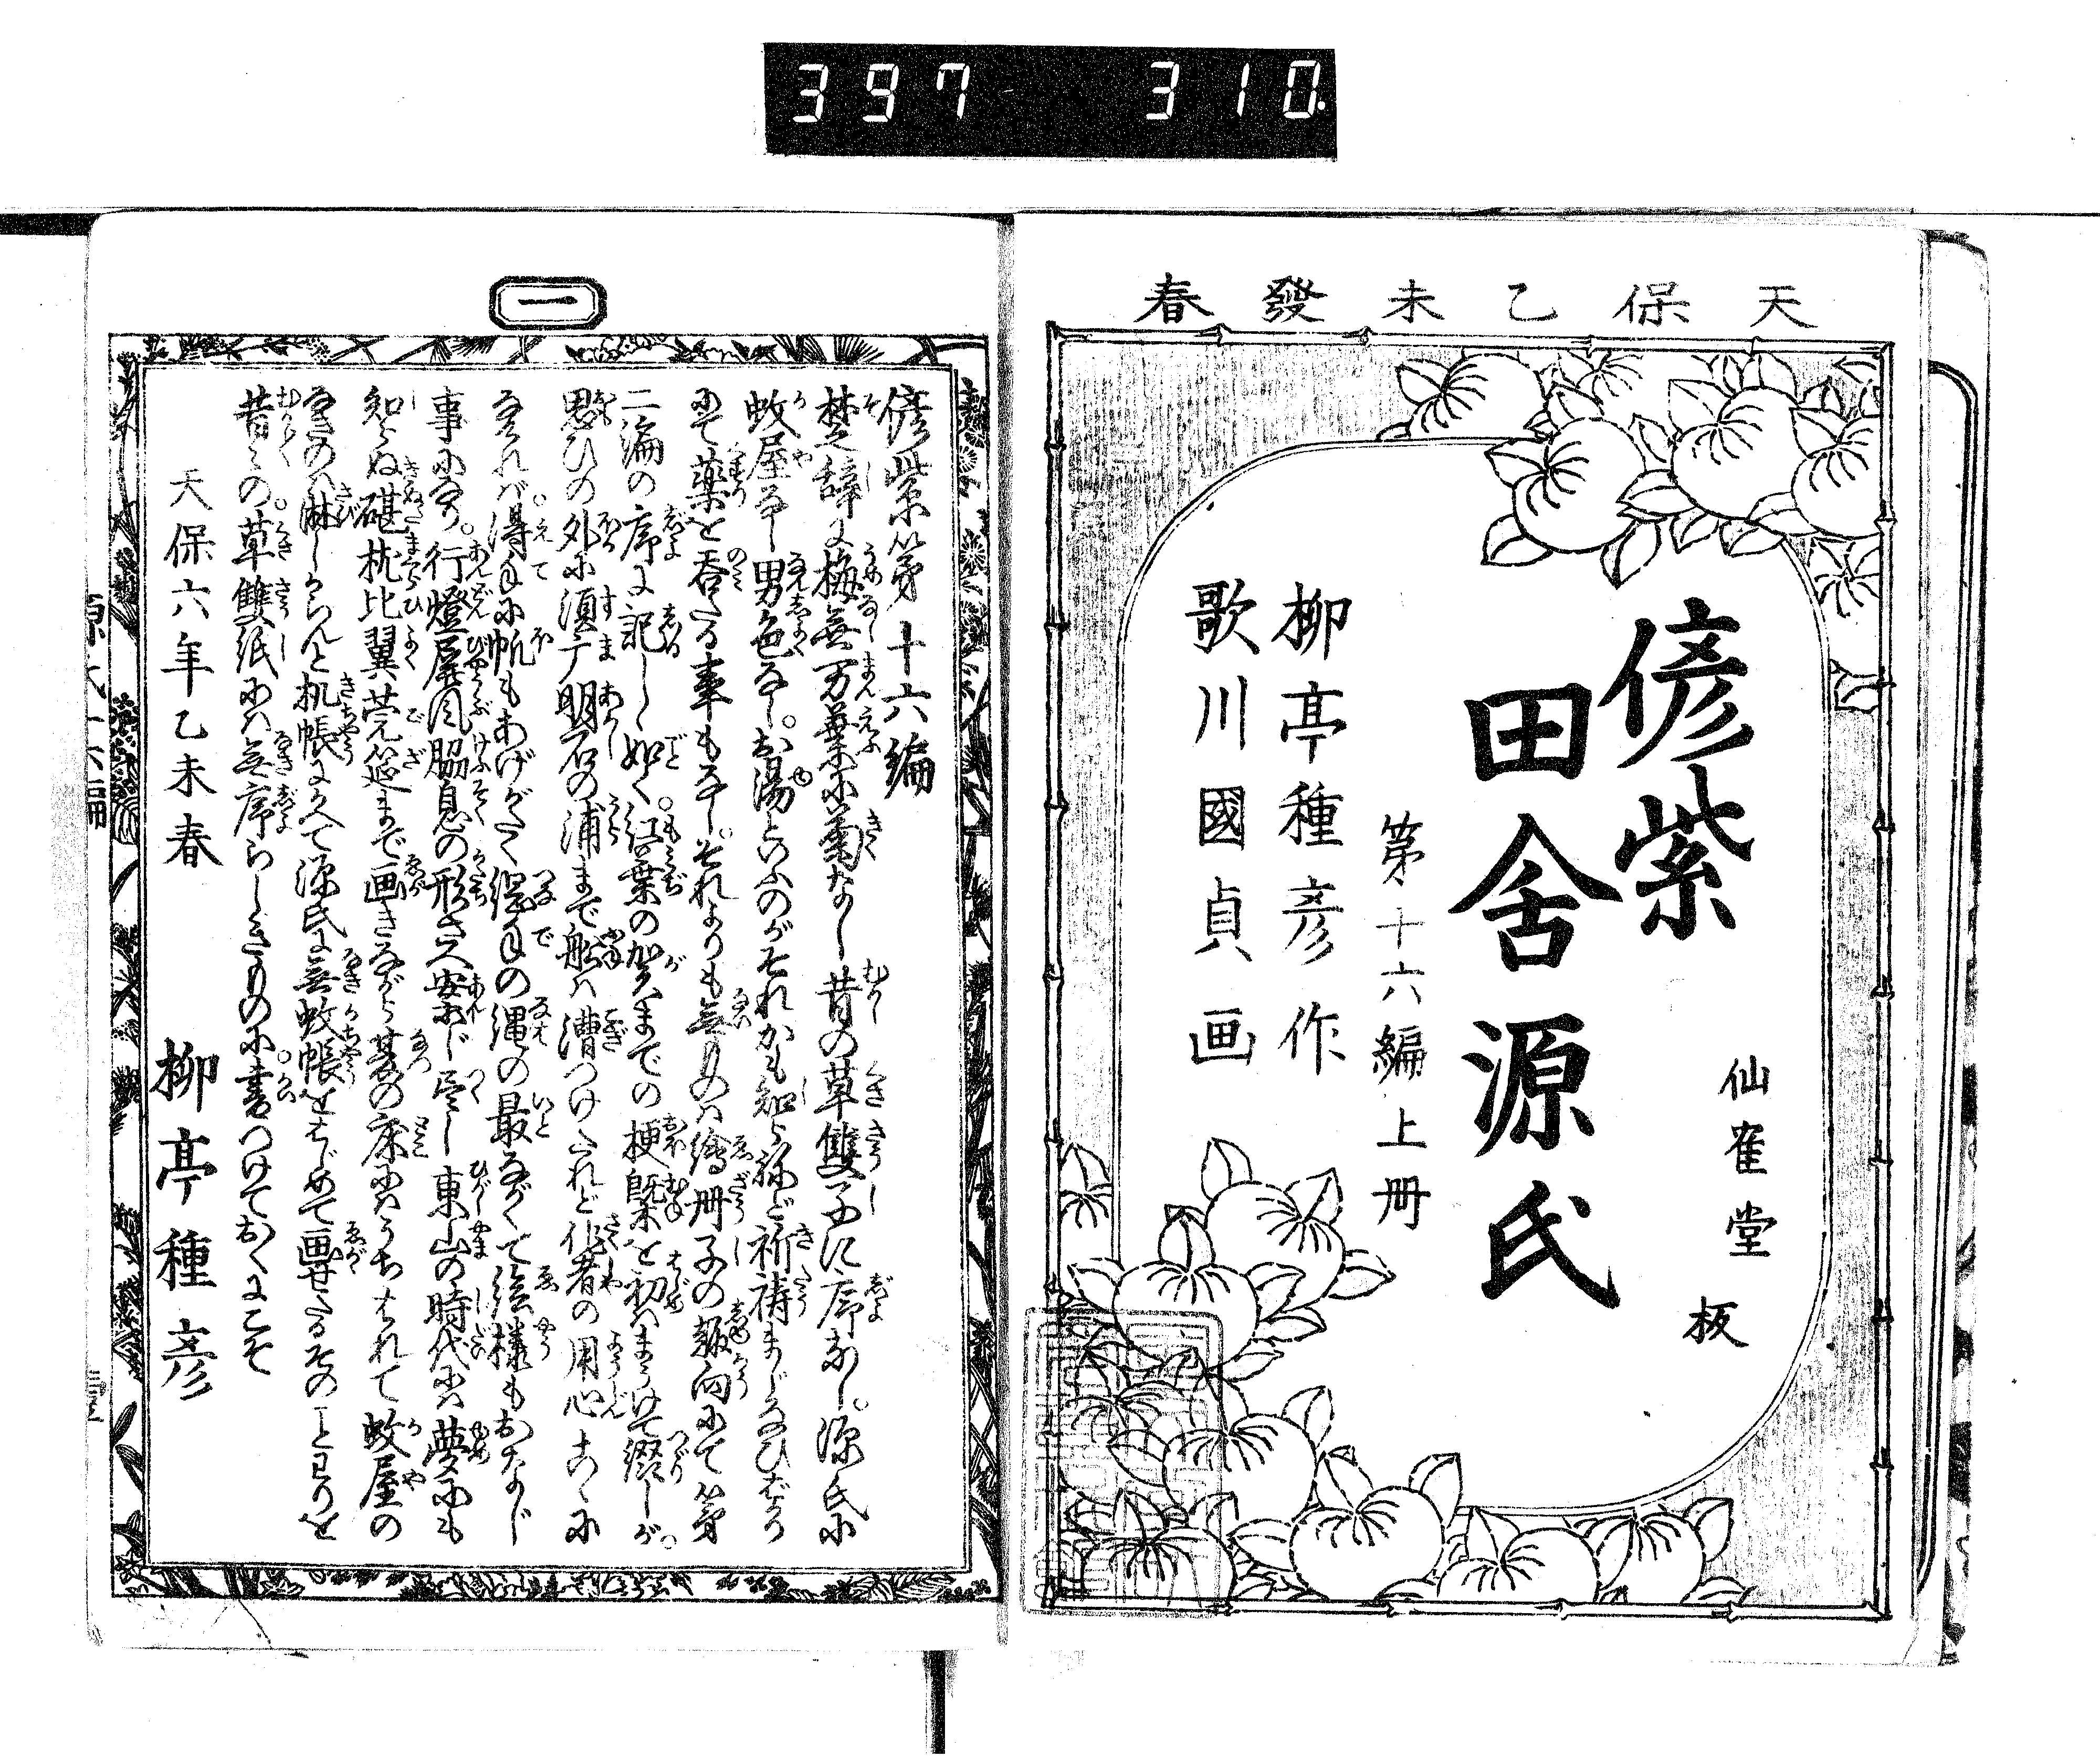 397 310
天保乙未發春
仙雀堂板
偐紫
田舍源氏
第十六編上冊
柳亭種彦作
歌川國貞画
一
偐紫第十六編
楚辞に梅無万葉に菊なし昔の草雙子に序なし。源氏に
蚊屋なし男色なし。お湯といふのがそれかも知らねど祈祷まじなひばかり
にて薬を呑たる事もなし。それよりも無ものは繪冊子の趣向にて第
二編の序に記し如く。紅葉の賀までの梗槩を初はまうけて綴しが。
思ひの外に須广明石の浦まで船は漕つけたれど作者の用心こゝに
なければ。得手に帆もあげがたく綱手の縄の最ながくて絵様もおなじ
事になり。行燈屏風脇息の形さへ案じ尽し東山の時代には夢にも
知らぬ碪枕比翼茣筵まで画きながら暑の床にはうちはれて蚊屋の
なきのは淋しからんと机帳に久て源氏に無蚊帳をはじめて画せたるそのことわりを
昔〻の。草雙紙には無序らしきものに書つけておくにこそ
天保六年乙未春
柳亭種彦